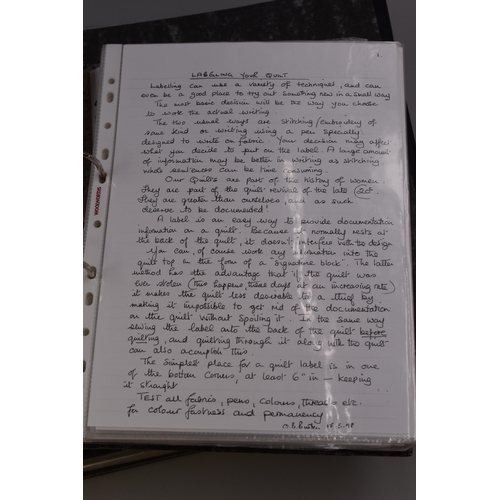 1.
LABELLING YOUR QUILT
Labelling can use a variety of techniques, and can
even be a good place to try out something new in a small way
The most basic decision will be the way you choose
to work the actual writing.
The two usual ways are stitching/embroidery of
some kind or writing using a pen specially
designed to write on fabric. Your decision may affect
what you decide to put on the label. A large amount
of information may be better in writing as stitching
whole sentences can be time consuming.
Our Quilts are part of the history of women
They are part of the quilt revival of the late 20C
They are greater than ourselves, and as such
deserve to be documented!
A label is an easy way to provide documentation
information on a quilt. Because it normally rests at
the back of the quilt, it doesn't interfere with the design
You can, of cause work any information into the
quilt top in the form of a "signature block". The latter
method has the advantage that if the quilt was
ever stolen (this happens, these days at an increasing rate)
it makes the quilt less desirable to a thief by
making it impossible to get rid of the documentation
on the quilt without spoiling it. In the same way
sewing the label onto the back of the quilt before
quilting, and quilting through it along with the quilt
can also accomplish this.
The simplest place for a quilt label is in one
of the bottom corners, at least 6" in — keeping
it straight
TEST all fabric, pens, colours, threads etc.
for colour fastness and permanency